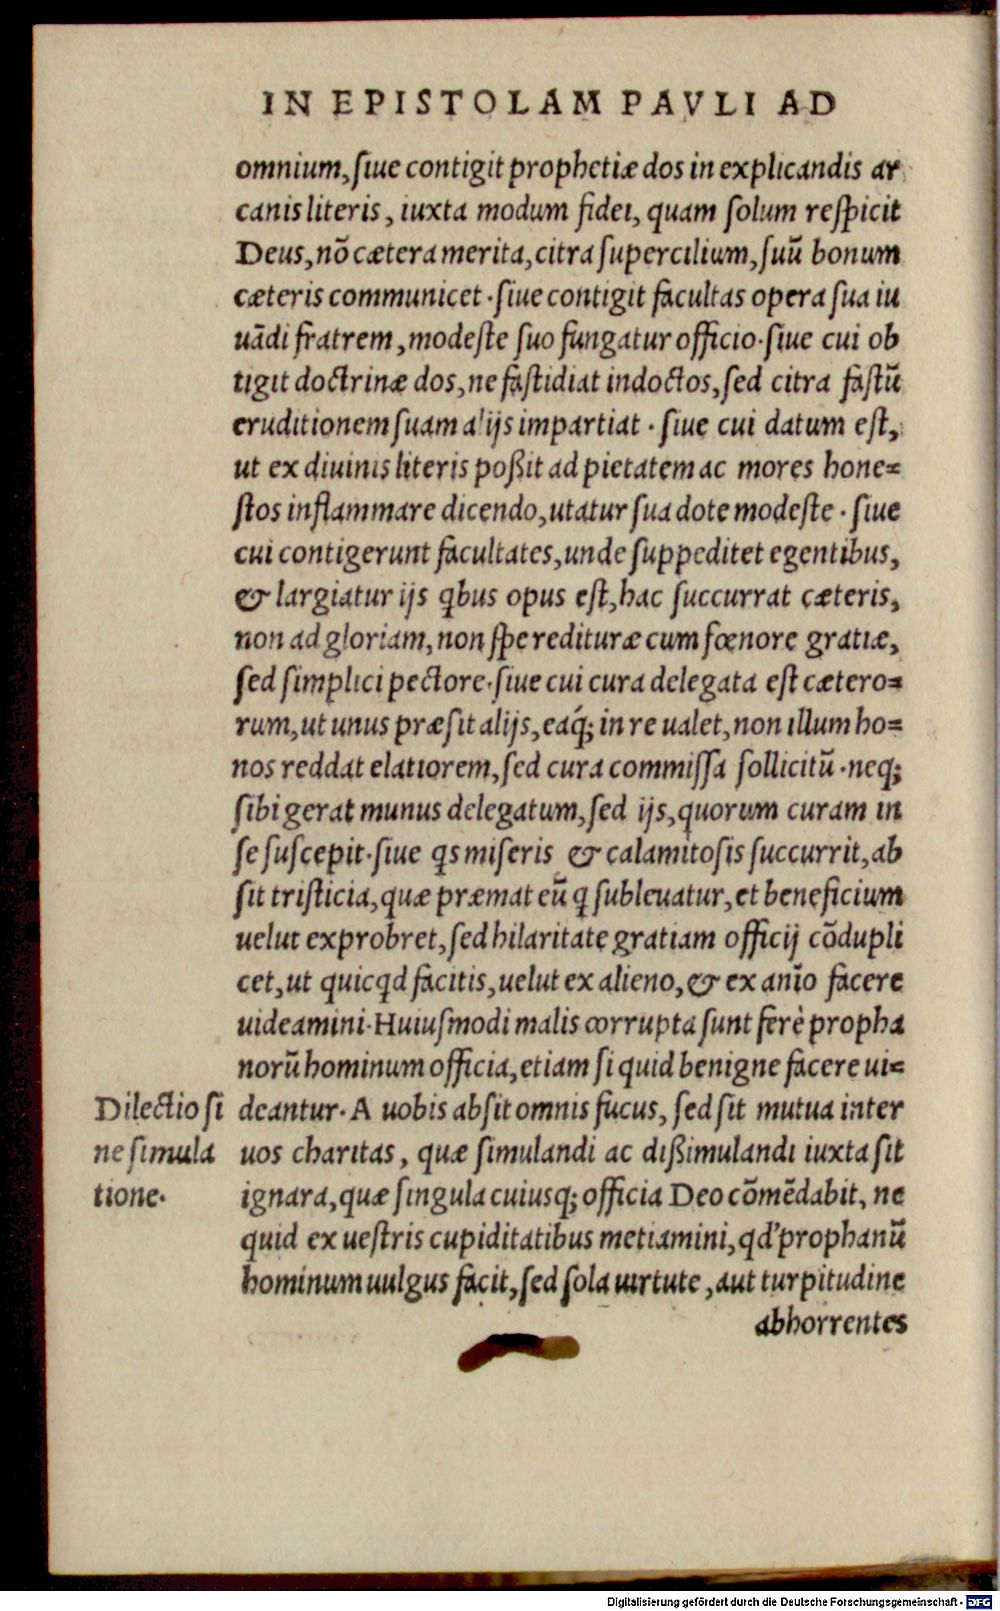 IN EPISTOLAM PAVLI AD
omnium, siue contigit prophetiæ dos in explicandis ar
canis literis, iuxta modum fidei, quam solum respicit
Deus, nõ cætera merita, citra supercilium, suũ bonum
cæteris communicet. siue contigit facultas opera sua iu
uãdi fratrem, modeste suo fungatur officio. siue cui ob
tigit doctrinæ dos, ne fastidiat indoctos, sed citra fastũ
eruditionem suam alijs impartiat. siue cui datum est,
ut ex diuinis literis poßit ad pietatem ac mores hone=
stos inflammare dicendo, utatur sua dote modeste. siue
cui contigerunt facultates, unde suppeditet egentibus,
& largiatur ijs qbus opus est, hac succurrat cæteris,
non ad gloriam, non spe redituræ cum fœnore gratiæ,
sed simplici pectore. siue cui cura delegata est cætero=
rum, ut unus præsit alijs, eaq́; in re ualet, non illum ho=
nos reddat elatiorem, sed cura commissa sollicitũ. neq;
sibi gerat munus delegatum, sed ijs, quorum curam in
se suscepit. siue qs miseris & calamitosis succurrit, ab
sit tristicia, quæ præmat eũ q subleuatur, et beneficium
uelut exprobret, sed hilaritate gratiam officij cõdupli
cet, ut quicqd facitis, uelut ex alieno, & ex anĩo facere
uideamini. Huiusmodi malis corrupta sunt ferè propha
norũ hominum officia, etiam si quid benigne facere ui=
Dilectio si
ne simula
tione.
deantur. A uobis absit omnis fucus, sed sit mutua inter
uos charitas, quæ simulandi ac dißimulandi iuxta sit
ignara, quæ singula cuiusq; officia Deo cõmẽdabit, ne
quid ex uestris cupiditatibus metiamini, qd' prophanũ
hominum uulgus facit, sed sola uirtute, aut turpitudine
abhorrentes
Digitalisierung gefördert durch die Deutsche Forschungsgemeinschaft - DFG